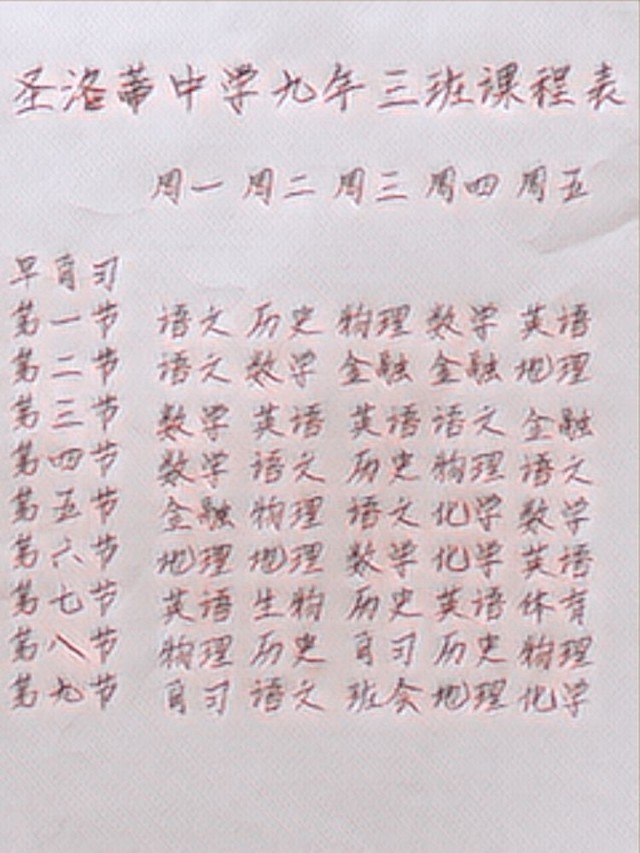 圣洛蒂中学九年三班课程表
周一 周二 周三 周四 周五
早自习
第一节 语文 历史 物理 数学 英语
第二节 语文 数学 金融 金融 地理
第三节 数学 英语 英语 语文 金融
第四节 数学 语文 历史 物理 语文
第五节 金融 物理 语文 化学 数学
第六节 地理 地理 数学 化学 英语
第七节 英语 生物 历史 英语 体育
第八节 物理 历史 自习 历史 物理
第九节 自习 语文 班会 地理 化学